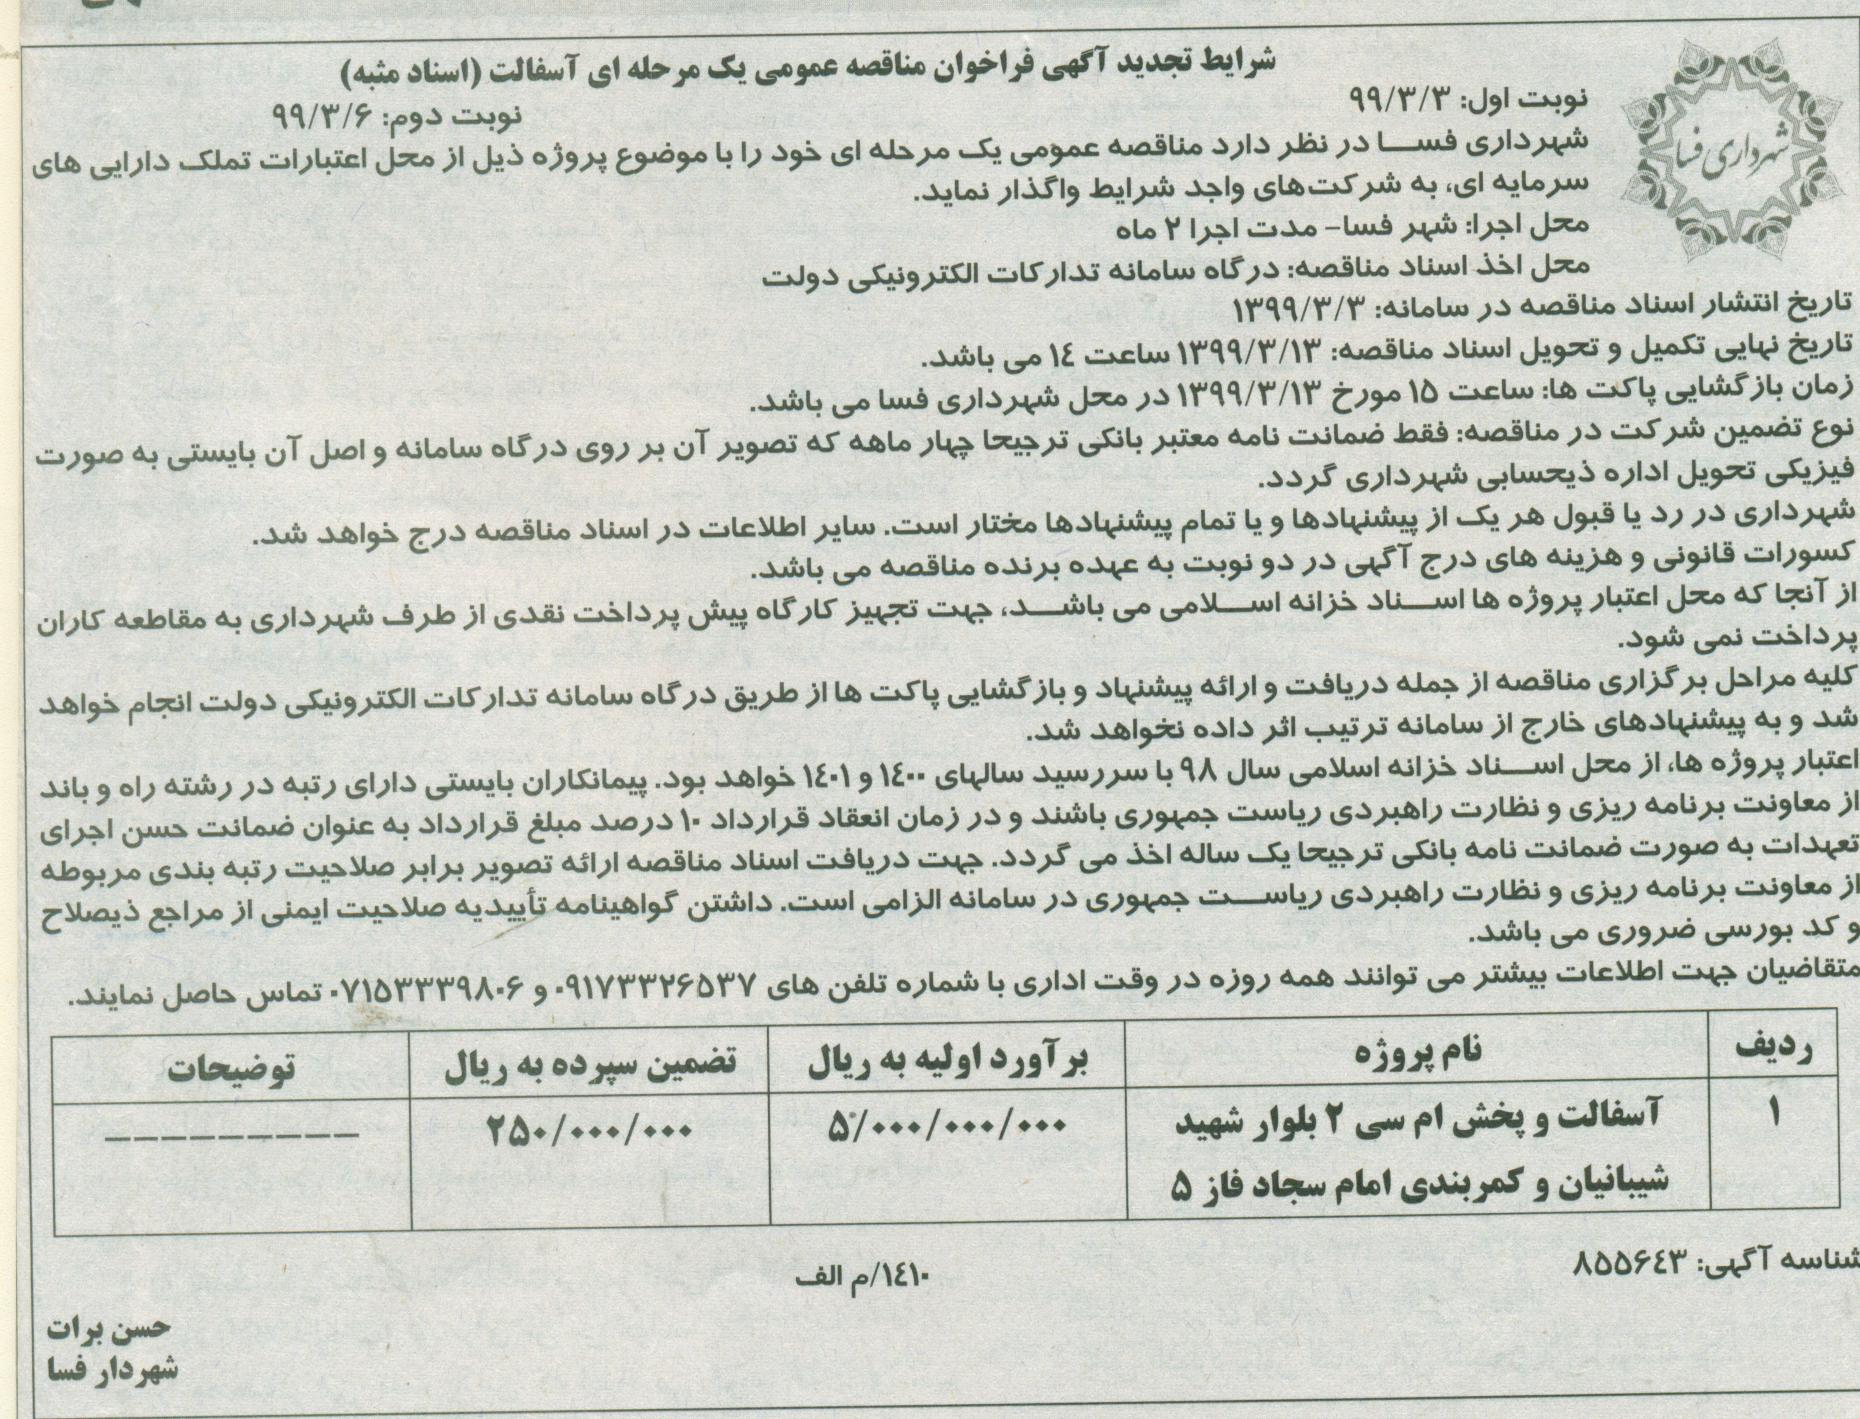 شرایط تجدید آگهی فراخوان مناقصه عمومی یک مرحله ای آسفالت (اسناد مثبه)
شهرداری فسا
نوبت اول: ۹۹/۳/۳
نوبت دوم: ۹۹/۳/۶
شهرداری فسا در نظر دارد مناقصه عمومی یک مرحله ای خود را با موضوع پروژه ذیل از محل اعتبارات تملک دارایی های
سرمایه ای، به شرکت‌های واجد شرایط واگذار نماید.
محل اجرا: شهر فسا- مدت اجرا ۲ ماه
محل اخذ اسناد مناقصه: درگاه سامانه تدارکات الکترونیکی دولت
تاریخ انتشار اسناد مناقصه در سامانه: ۱۳۹۹/۳/۳
تاریخ نهایی تکمیل و تحویل اسناد مناقصه: ۱۳۹۹/۳/۱۳ ساعت ۱٤ می باشد.
زمان بازگشایی پاکت ها: ساعت ۱۵ مورخ ۱۳۹۹/۳/۱۳ در محل شهرداری فسا می باشد.
نوع تضمین شرکت در مناقصه: فقط ضمانت نامه معتبر بانکی ترجیحا چهار ماهه که تصویر آن بر روی درگاه سامانه و اصل آن بایستی به صورت
فیزیکی تحویل اداره ذیحسابی شهرداری گردد.
شهرداری در رد یا قبول هر یک از پیشنهادها و یا تمام پیشنهادها مختار است. سایر اطلاعات در اسناد مناقصه درج خواهد شد.
کسورات قانونی و هزینه های درج آگهی در دو نوبت به عهده برنده مناقصه می باشد.
از آنجا که محل اعتبار پروژه ها اسناد خزانه اسلامی می باشد، جهت تجهیز کارگاه پیش پرداخت نقدی از طرف شهرداری به مقاطعه کاران
پرداخت نمی شود.
کلیه مراحل برگزاری مناقصه از جمله دریافت و ارائه پیشنهاد و بازگشایی پاکت ها از طریق درگاه سامانه تدارکات الکترونیکی دولت انجام خواهد
شد و به پیشنهادهای خارج از سامانه ترتیب اثر داده نخواهد شد.
اعتبار پروژه ها، از محل اسناد خزانه اسلامی سال ۹۸ با سررسید سالهای ۱٤۰۰ و ۱٤۰۱ خواهد بود. پیمانکاران بایستی دارای رتبه در رشته راه و باند
از معاونت برنامه ریزی و نظارت راهبردی ریاست جمهوری باشند و در زمان انعقاد قرارداد ۱۰ درصد مبلغ قرارداد به عنوان ضمانت حسن اجرای
تعهدات به صورت ضمانت نامه بانکی ترجیحا یک ساله اخذ می گردد. جهت دریافت اسناد مناقصه ارائه تصویر برابر صلاحیت رتبه بندی مربوطه
از معاونت برنامه ریزی و نظارت راهبردی ریاست جمهوری در سامانه الزامی است. داشتن گواهینامه تأییدیه صلاحیت ایمنی از مراجع ذیصلاح
و کد بورسی ضروری می باشد.
متقاضیان جهت اطلاعات بیشتر می توانند همه روزه در وقت اداری با شماره تلفن های ۰۹۱۷۳۳۲۶۵۳۷ و ۰۷۱۵۳۳۳۹۸۰۶ تماس حاصل نمایند.
ردیف نام پروژه برآورد اولیه به ریال تضمین سپرده به ریال توضیحات
۱ آسفالت و پخش ام سی ۲ بلوار شهید ۵/۰۰۰/۰۰۰/۰۰۰ ۲۵۰/۰۰۰/۰۰۰ ---------
شیبانیان و کمربندی امام سجاد فاز ۵
شناسه آگهی: ۸۵۵۶٤۳
۱٤۱۰/م الف
حسن برات
شهردار فسا